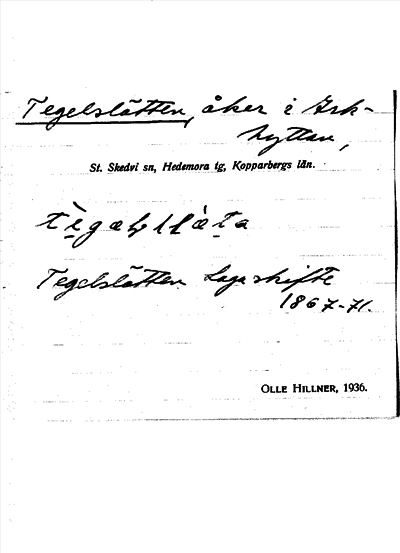 Tegelslätten, åker i Ark-
hyttan,
St. Skedvi sn, Hedemora tg, Kopparbergs län.
Tegelslätten Laga skifte
1867-71.
OLLE HILLNER, 1936.